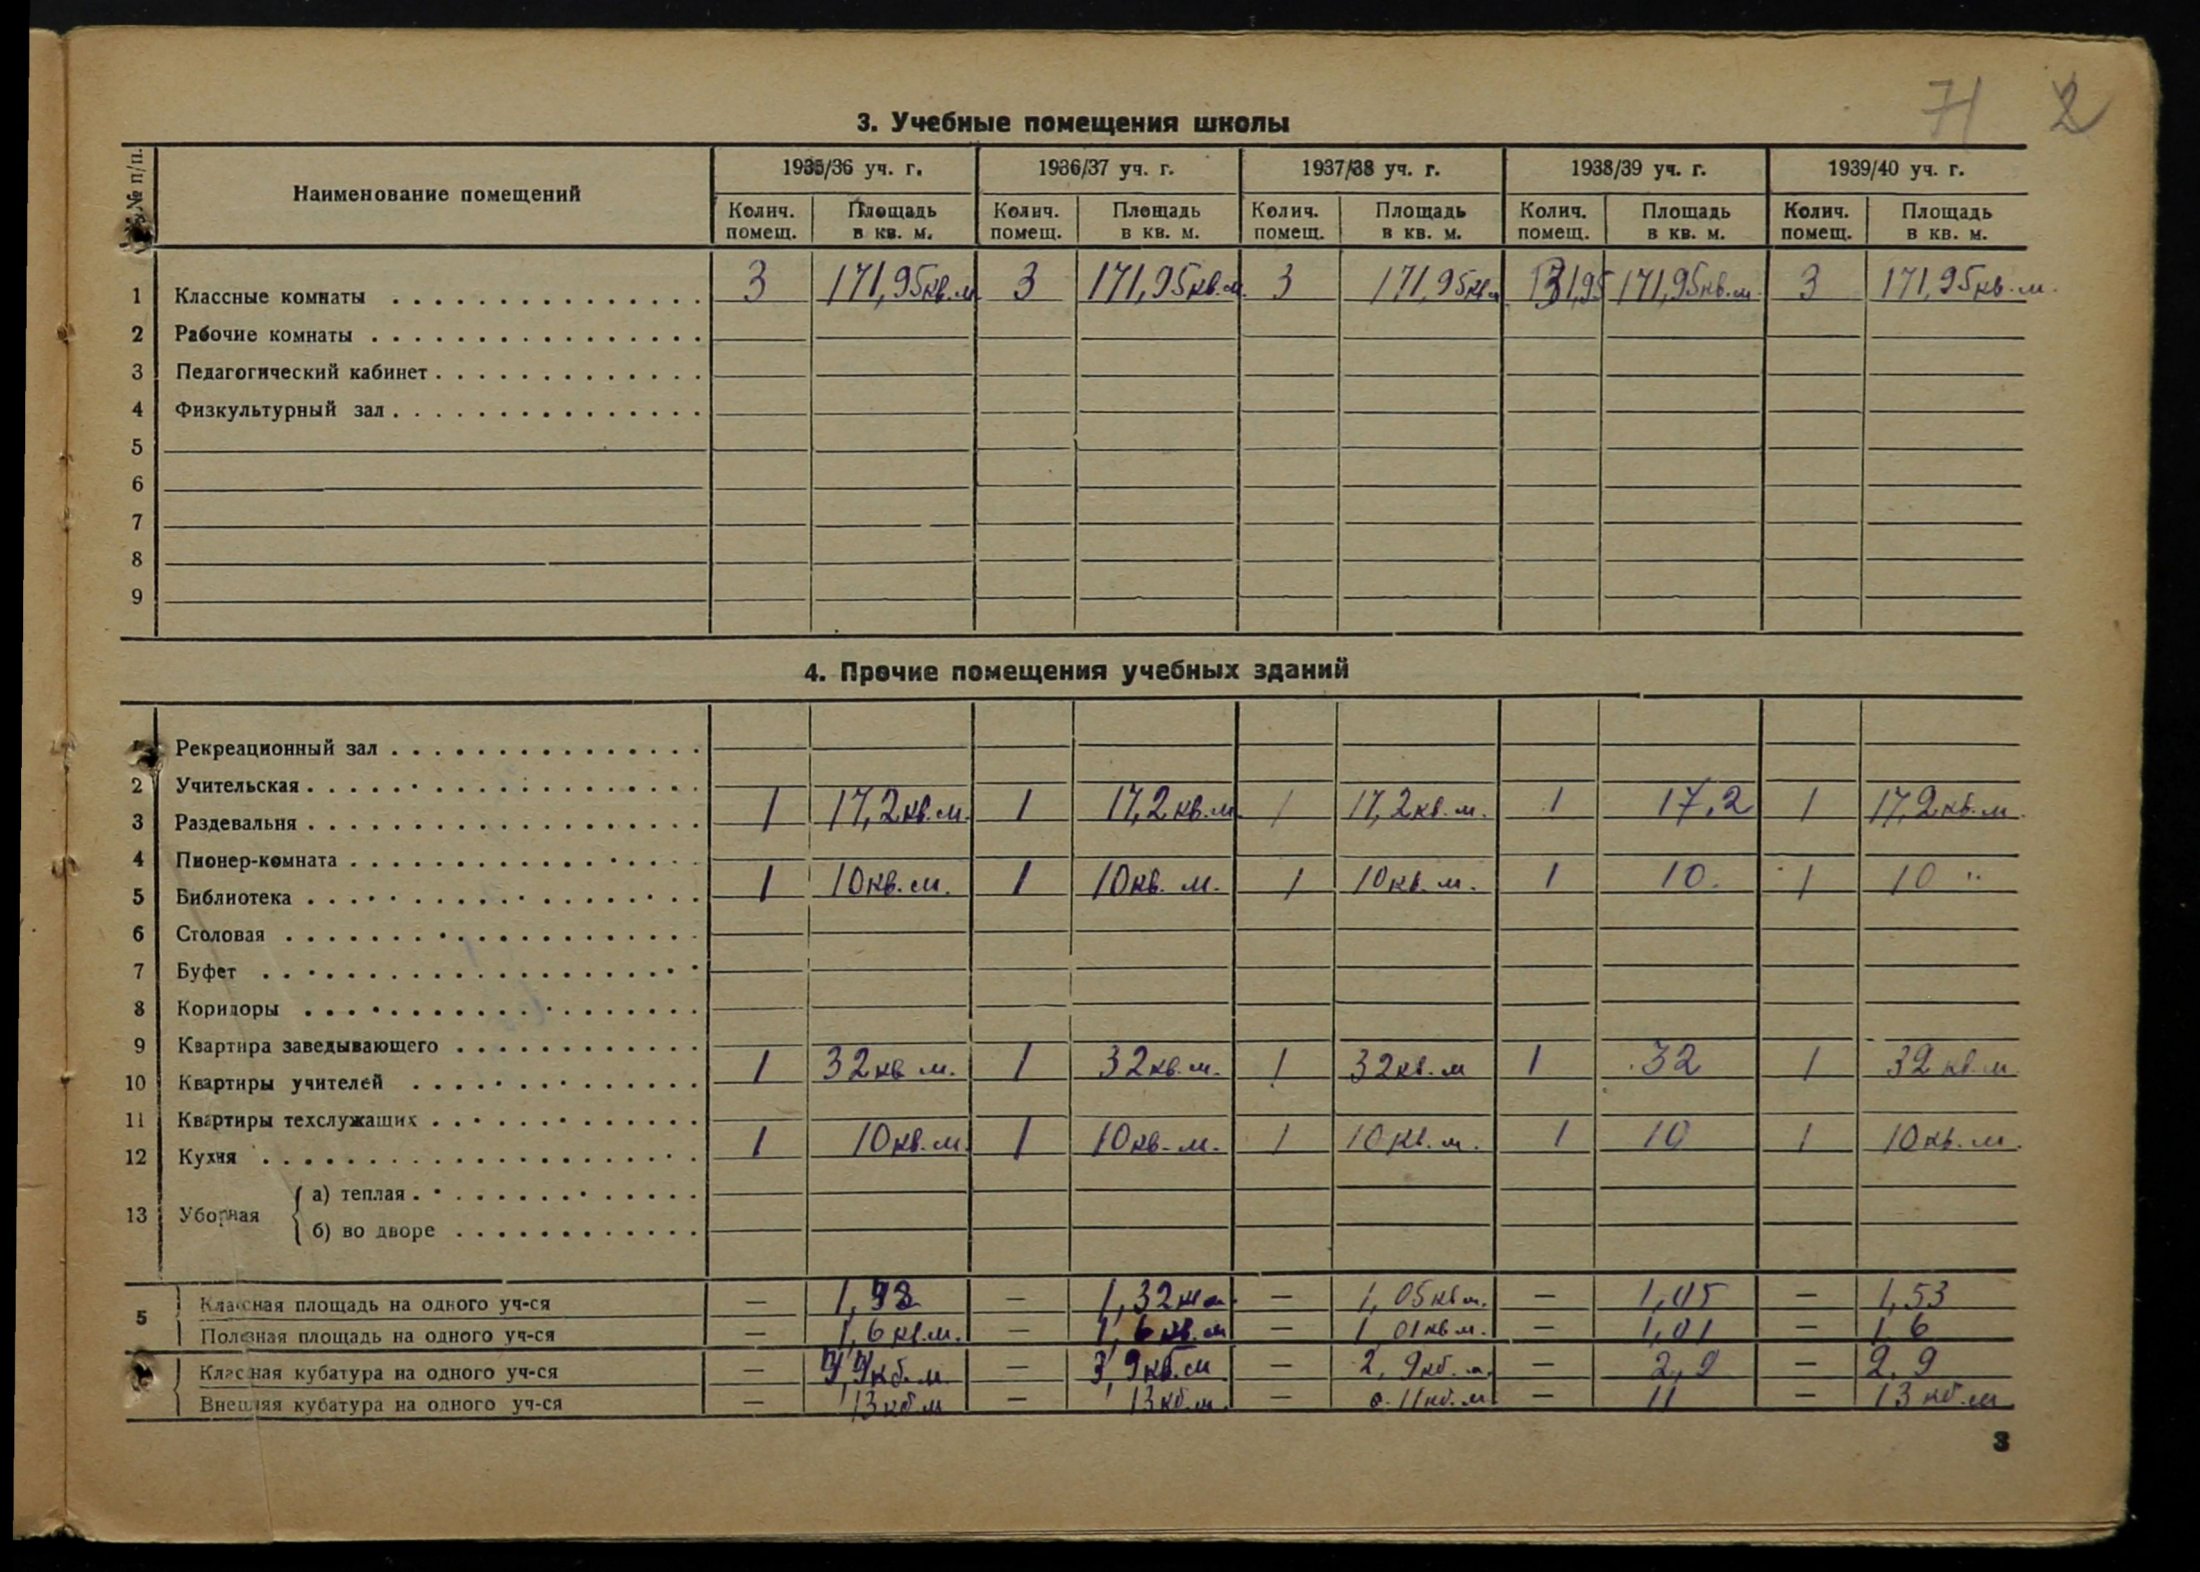 71 2
3. Учебные помещения школы
№ п/п. Наименование помещений 1935/36 уч. г. 1936/37 уч. г. 1937/38 уч. г. 1938/39 уч. г. 1939/40 уч. г.
Колич. помещ. Площадь в кв. м. Колич. помещ. Площадь в кв. м. Колич. помещ. Площадь в кв. м. Колич. помещ. Площадь в кв. м. Колич. помещ. Площадь в кв. м.
1 Классные комнаты 3 171,95кв.м 3 171,95кв.м. 3 171,95кв.м 3 171,95кв.м. 3 171,95кв.м.
2 Рабочие комнаты
3 Педагогический кабинет
4 Физкультурный зал
5
6
7
8
9
4. Прочие помещения учебных зданий
Рекреационный зал
2 Учительская
3 Раздевальня 1 17,2кв.м. 1 17,2кв.м. 1 17,2кв.м. 1 17,2 1 17,2кв.м.
4 Пионер-комната
5 Библиотека 1 10кв.м. 1 10кв.м. 1 10кв.м. 1 10. 1 10 "
6 Столовая
7 Буфет
8 Коридоры
9 Квартира заведывающего
10 Квартиры учителей 1 32кв м. 1 32кв.м. 1 32кв.м 1 32 1 32кв.м
11 Квартиры техслужащих
12 Кухня 1 10кв.м. 1 10кв.м. 1 10кв.м. 1 10 1 10кв.м.
13 Уборная а) теплая
б) во дворе
5 Классная площадь на одного уч-ся — — 1,32 — 1,05кв м. — 1,05 — 1,53
Полезная площадь на одного уч-ся — 1,6кв.м. — 1,6кв.м — 1,01кв м. — 1,01 — 1,6
Классная кубатура на одного уч-ся — — 3,9кб.м — 2,9кб.м — 2,9 — 2,9
Внешняя кубатура на одного уч-ся — 13кб м — 13кб.м. — 11кб.м. — 11 — 13кб.м
3